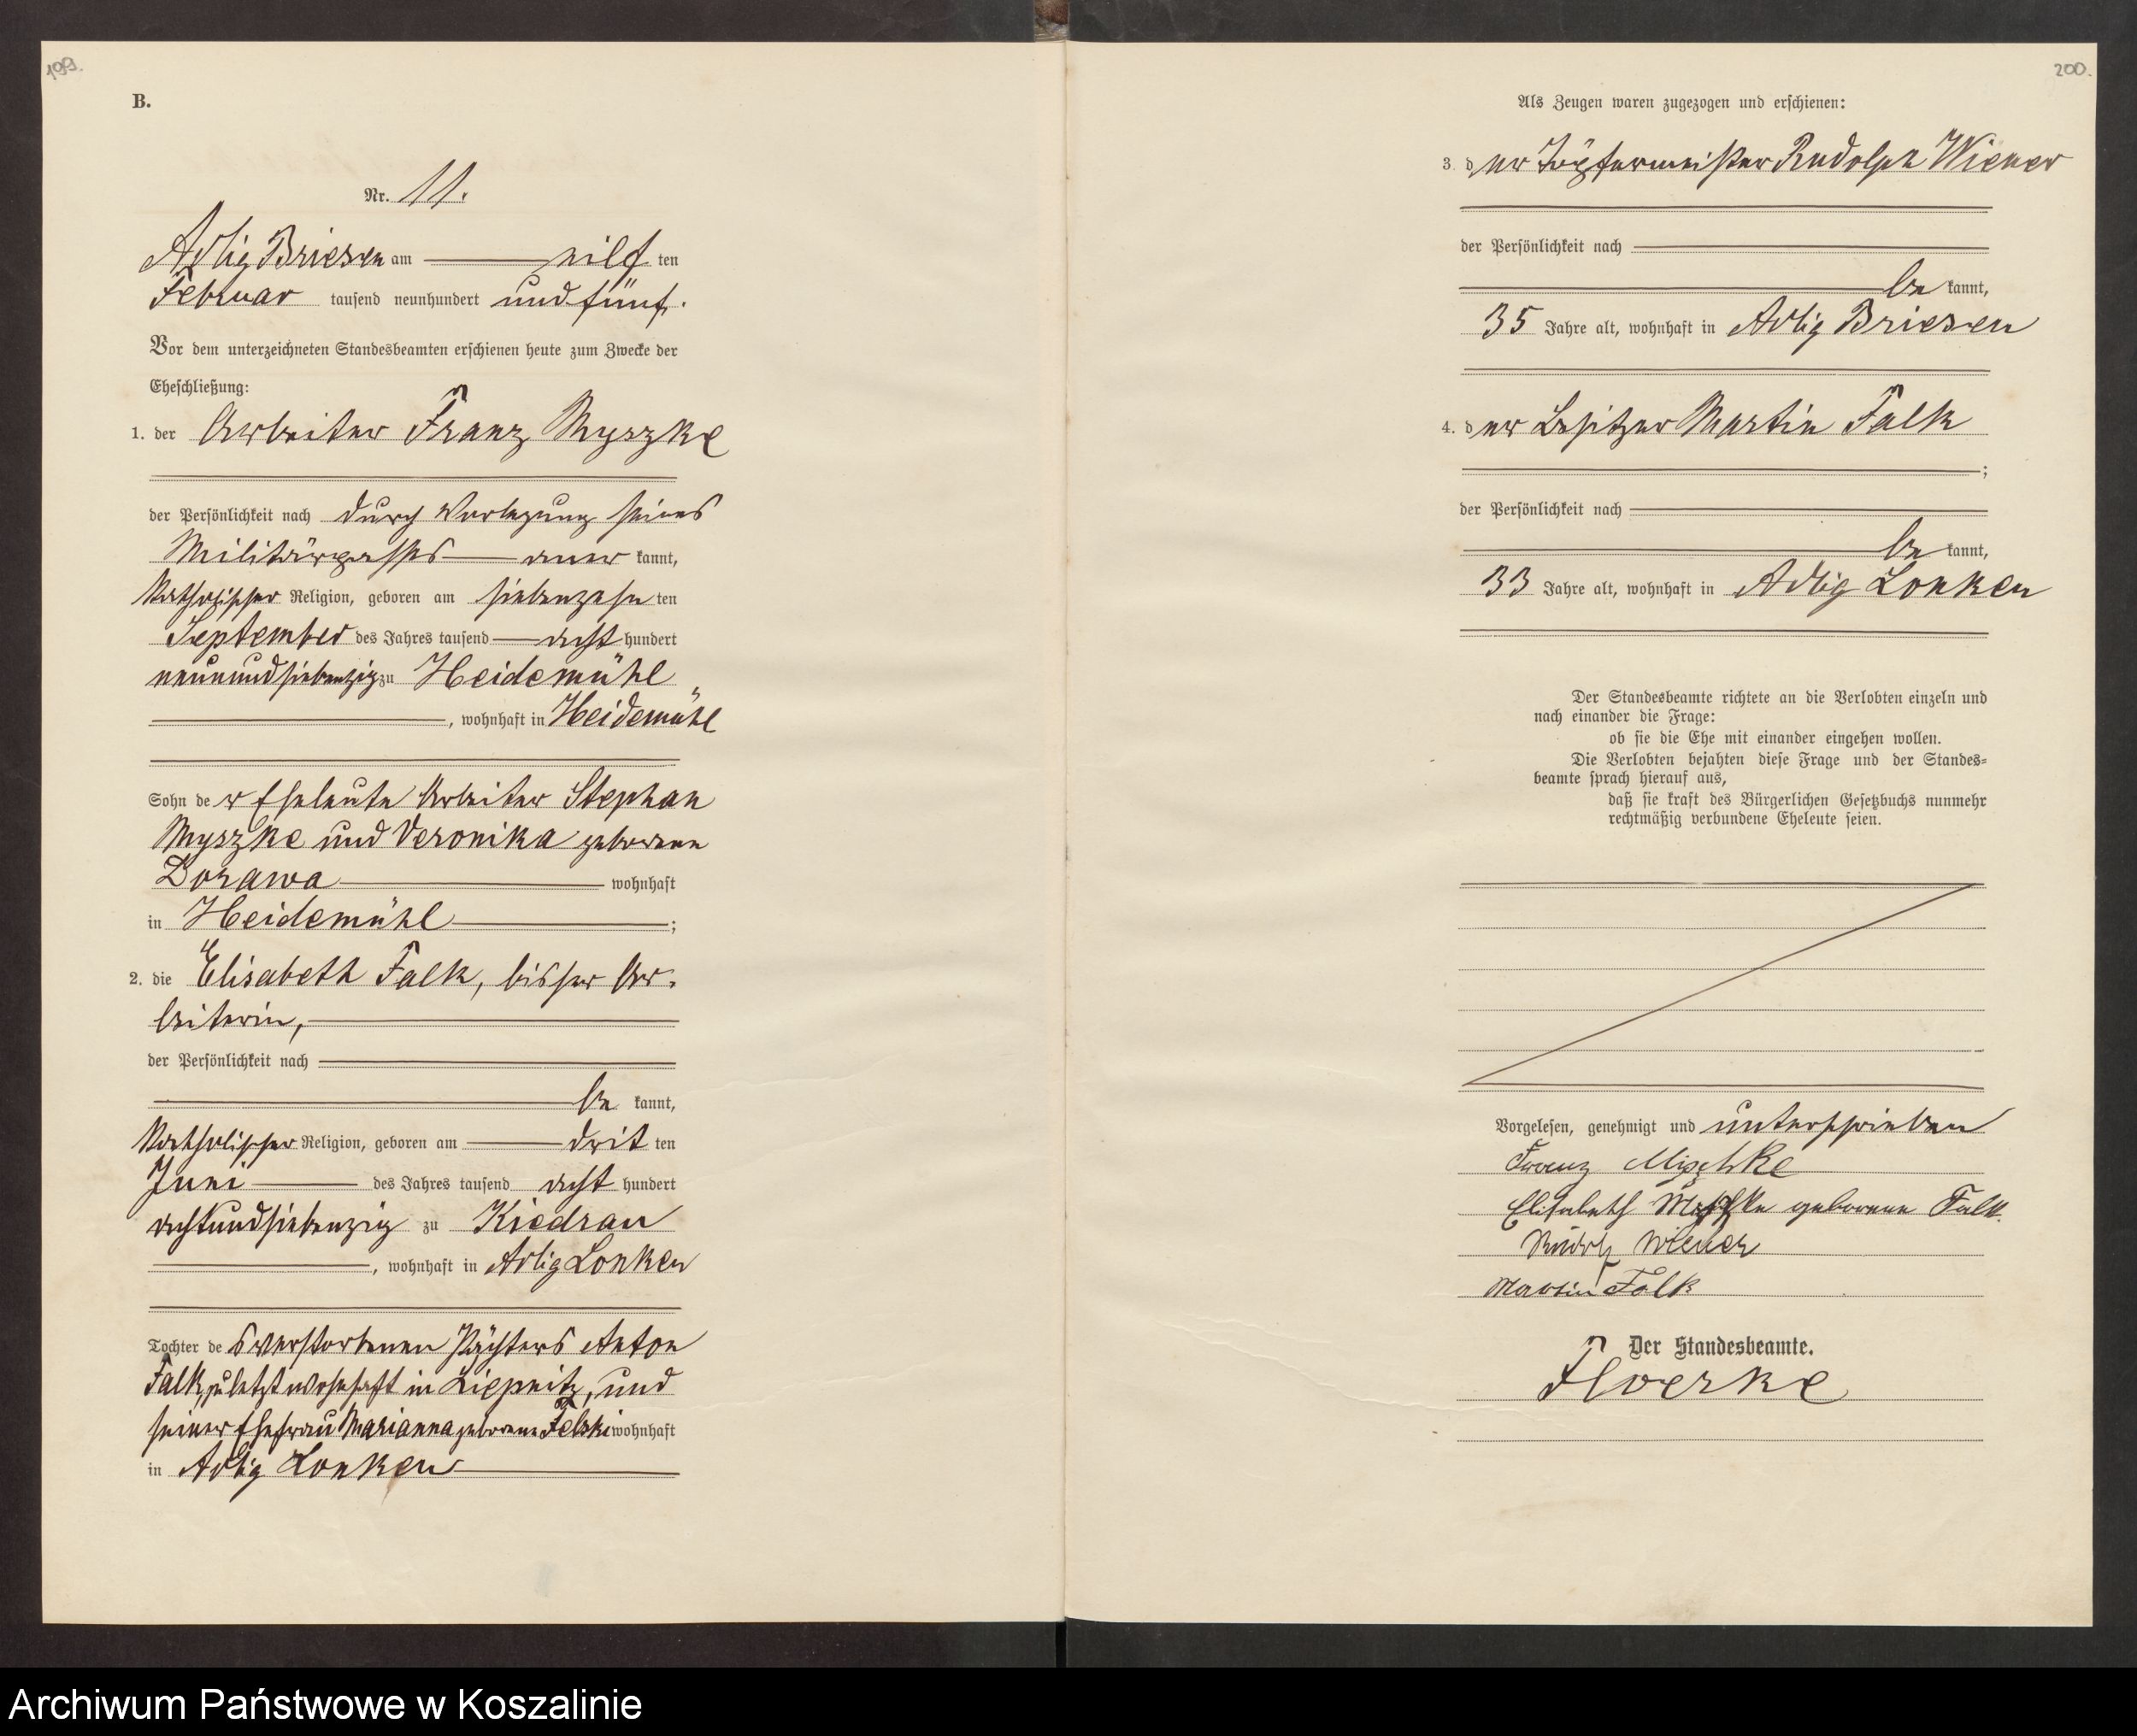 199.
B.
Nr. 11.
Adlig Briesen am eilf ten
Februar tausend neunhundert und fünf.
Vor dem unterzeichneten Standesbeamten erschienen heute zum Zwecke der
Eheschließung:
1. der Arbeiter Franz Myszke
der Persönlichkeit nach durch Vorlegung seines
Militärpasses aner kannt,
katholischer Religion, geboren am siebenzehn ten
September des Jahres tausend acht hundert
neunundsiebenzig zu Heidemühl
, wohnhaft in Heidemühl
Sohn de r Eheleute Arbeiter Stephan
Myszke und Veronika geborene
Dorawa wohnhaft
in Heidemühl ;
2. die Elisabeth Falk, bisher Ar-
beiterin,
der Persönlichkeit nach
be kannt,
katholischer Religion, geboren am drit ten
Juni des Jahres tausend acht hundert
achtundsiebenzig zu Kiedrau
, wohnhaft in Adlig Lonken
Tochter de s verstorbenen Pächters Anton
Falk, zuletzt wohnhaft in Liepnitz, und
seiner Ehefrau Marianna geborene Felski wohnhaft
in Adlig Lonken
200.
Als Zeugen waren zugezogen und erschienen:
3. d er Töpfermeister Rudolph Wiener
der Persönlichkeit nach
be kannt,
35 Jahre alt, wohnhaft in Adlig Briesen
4. d er Besitzer Martin Falk
;
der Persönlichkeit nach
be kannt,
33 Jahre alt, wohnhaft in Adlig Lonken
Der Standesbeamte richtete an die Verlobten einzeln und
nach einander die Frage:
ob sie die Ehe mit einander eingehen wollen.
Die Verlobten bejahten diese Frage und der Standes=
beamte sprach hierauf aus,
daß sie kraft des Bürgerlichen Gesetzbuchs nunmehr
rechtmäßig verbundene Eheleute seien.
Vorgelesen, genehmigt und unterschrieben
Franz Mischke
Elisabeth geborene Falk.
Rudolf Wiener
Martin Falk
Der Standesbeamte.
Floerke
Archiwum Państwowe w Koszalinie